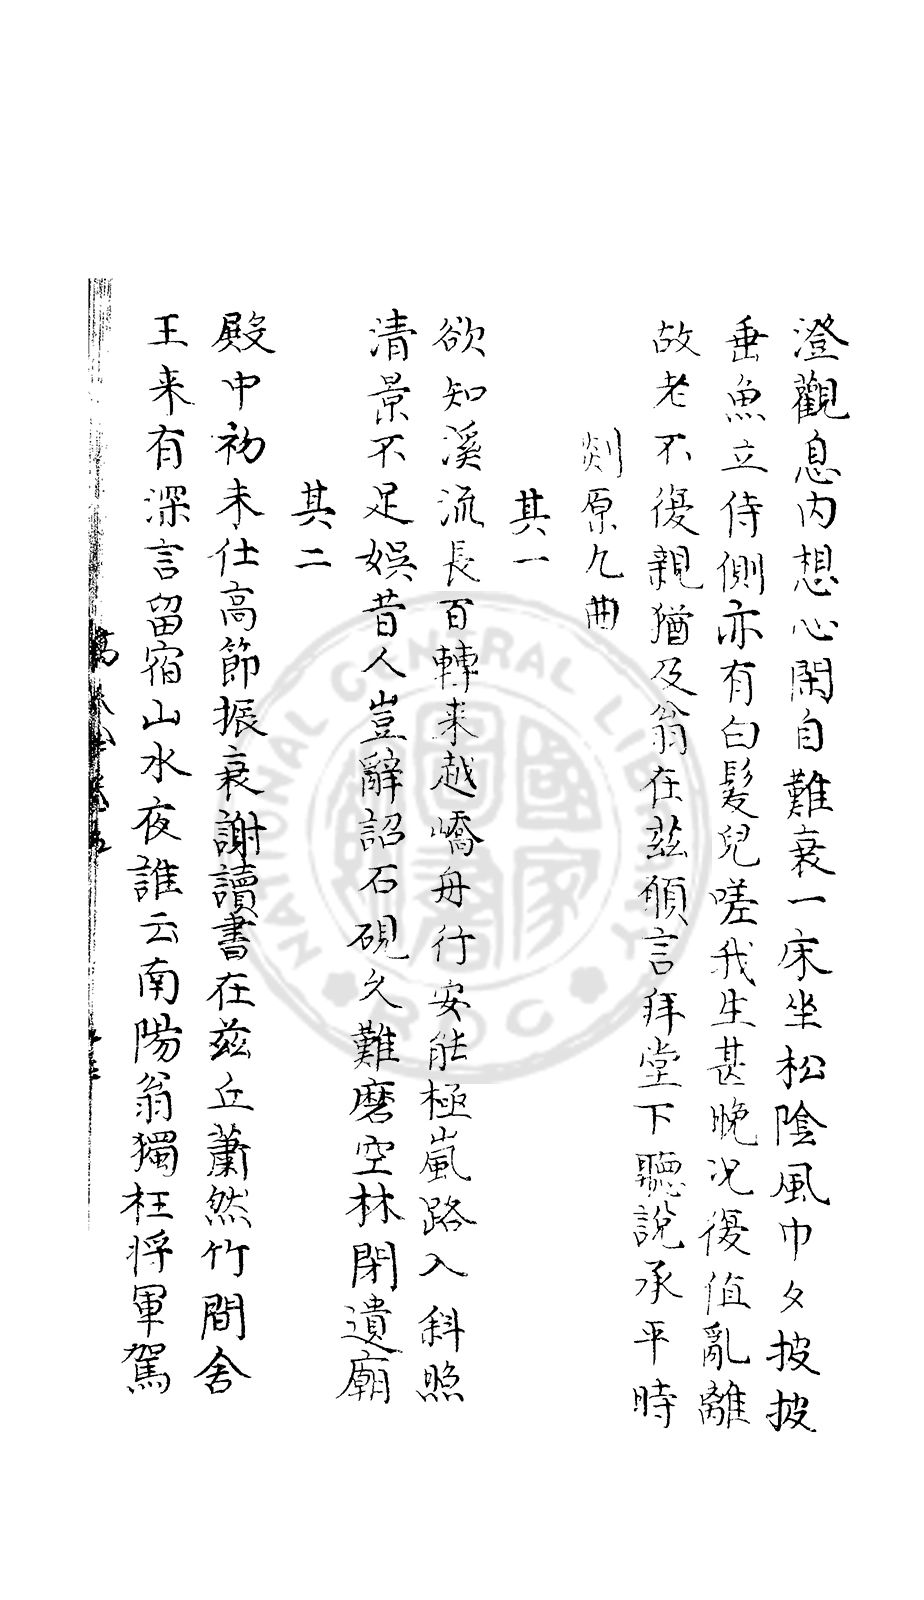 澄觀息内想心閑自難衰一床坐松陰風巾夕披披
垂魚立侍側亦有白髮兒嗟我生甚晚况復值亂離
故老不復親猶及翁在兹願言拜堂下聽説承平時
剡原九曲
其一
欲知溪流長百轉来越嶠舟行安能極嵐路入斜照
清景不足娛昔人豈辭詔石硯久難磨空林閉遺廟
其二
殿中初未仕高節振衰謝讀書在兹丘蕭然竹間舍
王来有深言留宿山水夜誰云南陽翁獨枉将軍駕
NATIONAL GENERAL LIBRARY ROC
國家圖書